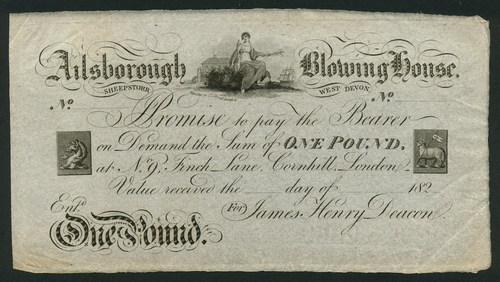 Ailsborough Blowing House.
SHEEPSTORR WEST DEVON
No No
I Promise to pay the Bearer
on Demand the Sum of ONE POUND,
at No. 9, Finch Lane, Cornhill, London,
Value received the day of 182
Entd.
For James Henry Deacon.
One Pound.